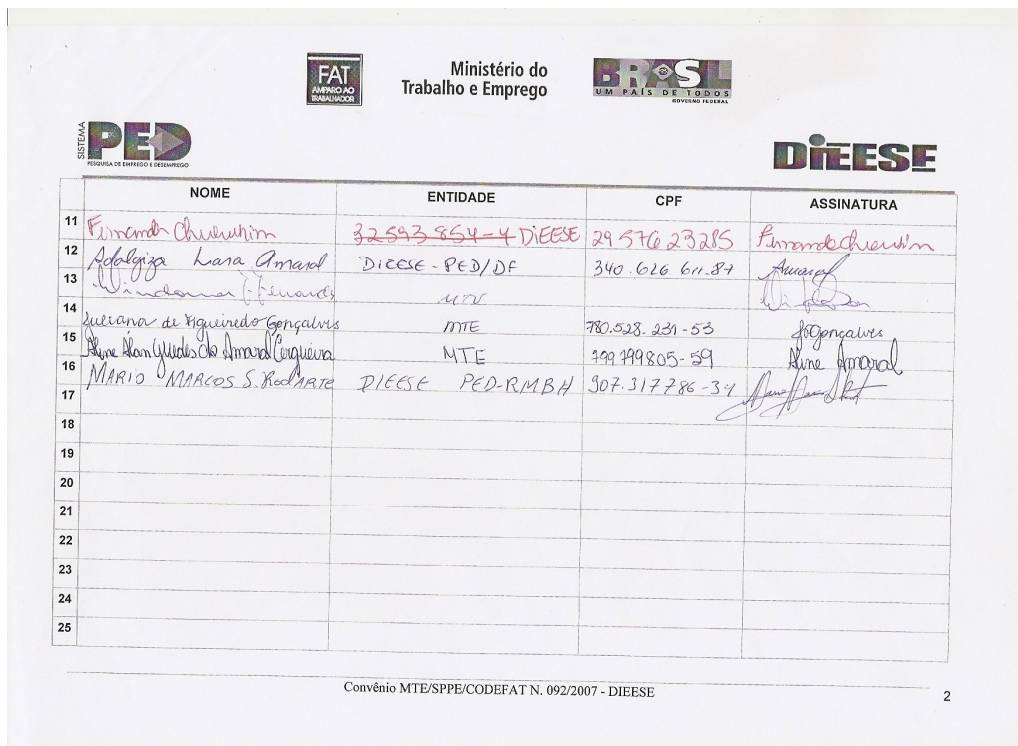 FAT
AMPARO AO
TRABALHADOR
Ministério do
Trabalho e Emprego
BRASIL
UM PAÍS DE TODOS
GOVERNO FEDERAL
SISTEMA PED
PESQUISA DE EMPREGO E DESEMPREGO
DIEESE
NOME ENTIDADE CPF ASSINATURA
11 Fernanda 32593854-4 DIEESE 2957623285 Fernanda
12 Adalgiza Lara Amaral DIEESE-PED/DF 340.626.611.87 Amaral
13
14 Luciana de Figueiredo Gonçalves MTE 780.528.231-53 Gonçalves
15 Aline Alan Guedes do Amaral Cerqueira MTE 799799805-59 Aline Amaral
16 MARIO MARCOS S. RODARTE DIEESE PED-RMBH 907.317786-34
17
18
19
20
21
22
23
24
25
Convênio MTE/SPPE/CODEFAT N. 092/2007 - DIEESE
2